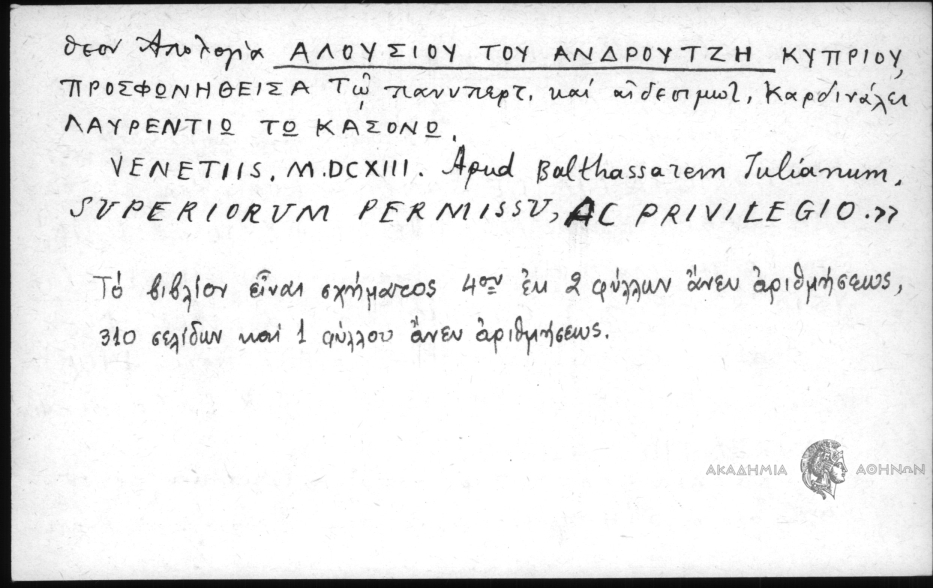 θεον Ἀπολογία ΑΛΟΥΣΙΟΥ ΤΟΥ ΑΝΔΡΟΥΤΖΗ ΚΥΠΡΙΟΥ,
ΠΡΟΣΦΩΝΗΘΕΙΣΑ Τῷ πανυπερτ. καί αἰδεσιμωτ. Καρδινάλει
ΛΑΥΡΕΝΤΙΩ ΤΩ ΚΑΣΟΝΩ.
VENETIIS. M.DCXIII. Apud Balthassarem Iulianum.
SUPERIORUM PERMISSU, AC PRIVILEGIO.»
Τό βιβλίον εἶναι σχήματος 4ον ἐκ 2 φύλλων ἄνευ ἀριθμήσεως,
310 σελίδων καί 1 φύλλου ἄνευ ἀριθμήσεως.
ΑΚΑΔΗΜΙΑ ΑΘΗΝΩΝ